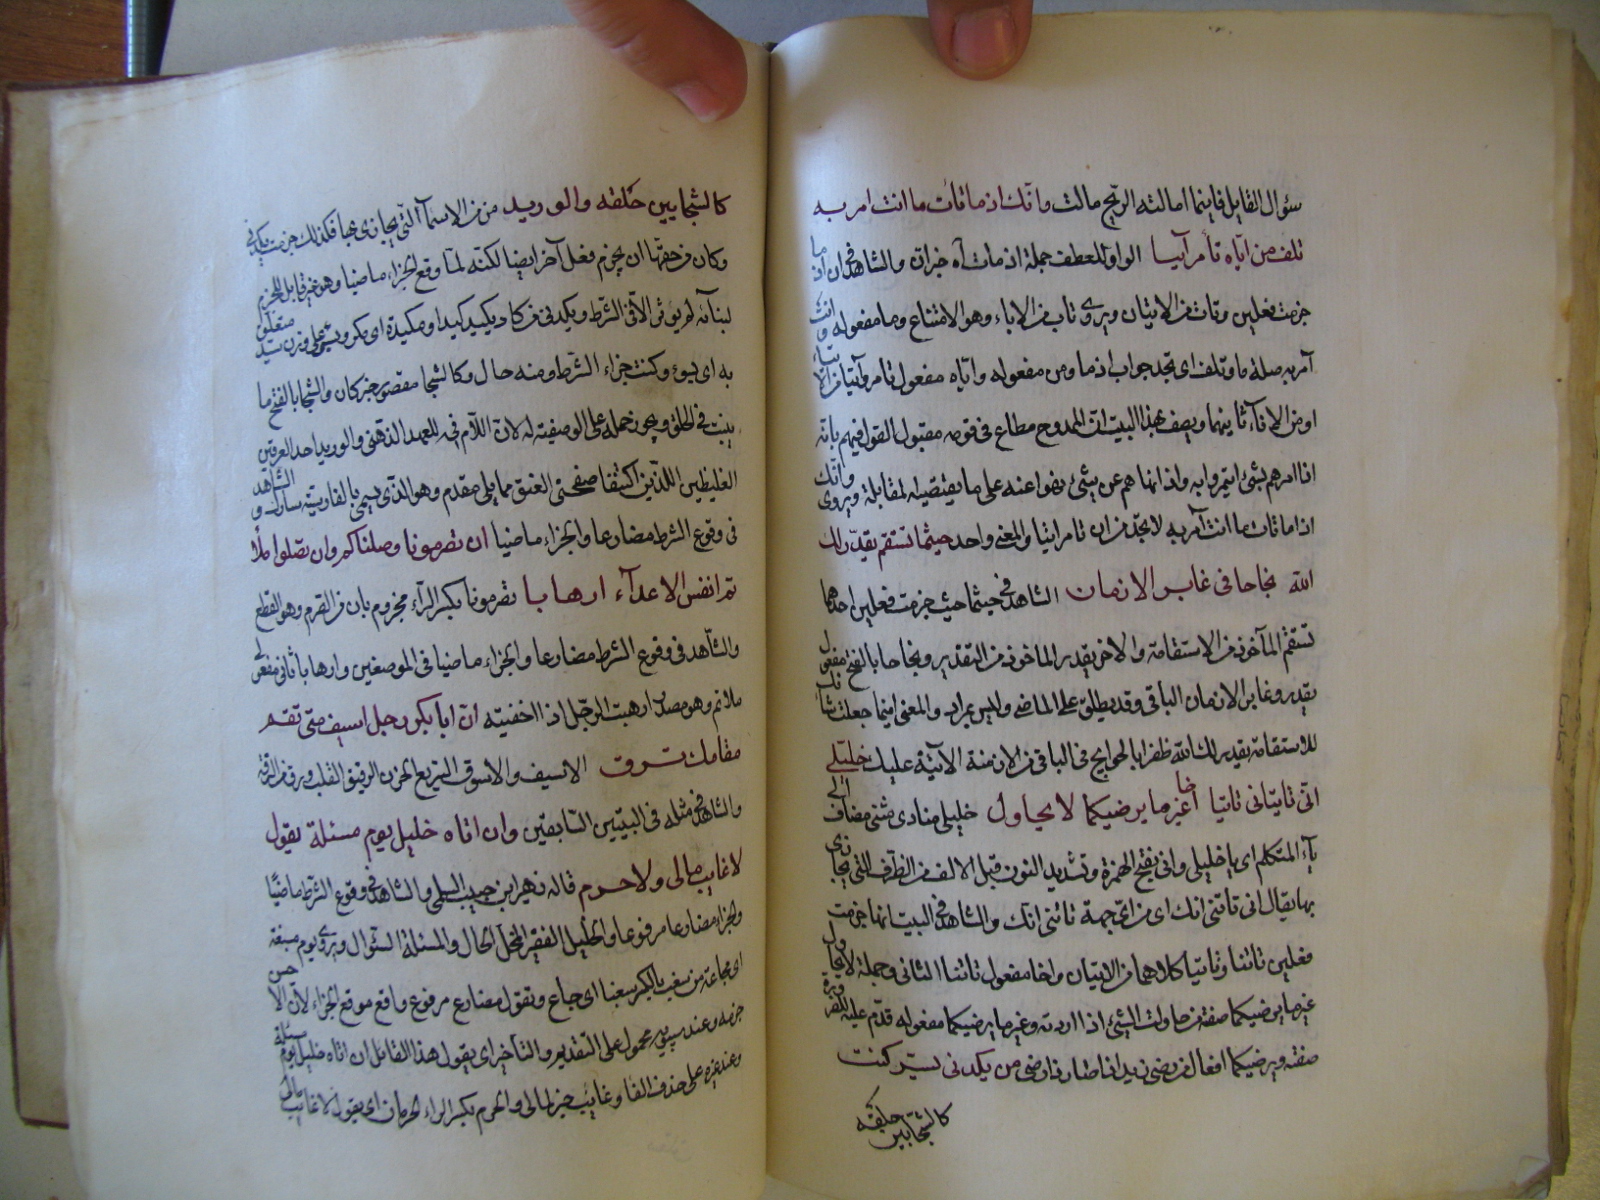 سؤال القايل فاينما امالته الريح مالت وانك اذ ما تات ما انت امر به
تلف من اياه تامر آتيا الواو للعطف جملة اذ مات آه خبران والشاهد في ان اذ ما
جزمت فعلين وتات من الاتيان ويروى تاب من الاباء وهو الامتناع وما مفعوله وانت
آمر به صلة ما وتلف اى تجد جواب اذ ما ومن مفعوله واياه مفعول تامر وآتيا من
او من الايتاء ثانيهما ويصف بهذا البيت ان الممدوح مطاع في قومه مقبول القول فيهم بانه
اذا امرهم بشئ ايتمروا به واذا نهاهم عن شئ نهوا عنه على ما يقتضيه المقابلة ويروى وانك
اذا ما تات ما انت آمر به لا تجد من ان تامر اتيا والمعنى واحد حيثما تستقم يقدر لك
الله نجاحا في غابر الازمان الشاهد في حيثما حيث جزمت فعلين احدهما
تستقم المآخوذ من الاستقامة والاخر يقدر الماخوذ من التقدير ونجاحا بالفتح مفعول
يقدر وغابر الازمان الباقى وقد يطلق على الماضى وليس بمراد والمعنى اينما جعلت شانك
للاستقامة يقدر لك الله ظفرا بالحوايج في الباقى من الازمنة الآتية عليك خليلى
انى تاتيانى تاتيا اخا غير ما يرضيكما لا يحاول خليلى منادى مثنى مضاف الى
ياء المتكلم اى يا خليلى وانى بفتح الهمزة وتشديد النون قبل الالف من الظرف التى يجازى
بها يقال انى تاتنى اتك اى من اى جهة تاتنى اتك والشاهد في البيت انها جزمت
فعلين تاتيا وتاتيا كلاهما من الاتيان واخا مفعول تاتيا الثانى وجملة لا يحاول
غير ما يرضيكما صفته من حاولت الشئ اذا اردته وغير ما يرضيكما مفعوله قدم عليه
صفته ويرضيكما افعال من رضى من يكدنى بسئ كنت
كالشجا بين حلقه
كالشجا بين حلقه والوريد من من الاسماء التى يجازى بها فكذلك جزمت يكدنى
وكان من حقها ان يجزم فعل آخر ايضا لكنه لما وقع الجزاء ماضيا وهو غير قابل للجزم
لبنائه لم يوثر الا في الشرط ويكدنى من كاد يكيد كيدا ومكيدة اى مكر وبسئ على وزن سيد متعلق
به اى بسوء وكنت جزاء الشرط ومنه حال وكالشجا مقصور خبر كان والشجا بالفتح ما
ينبت في الحلق ويجوز حمله على الوصفية له لان اللام فيه للعهد الذهنى والوريد احد العرقين
الغليظين اللذين اكتنفا صفحتى العنق مما يلى مقدم وهو الذى يسمى بالفارسية والشاهد
في وقوع الشرط مضارعا والجزاء ماضيا ان تصرمونا وصلناكم وان تصلوا ملا
تم انفس الاعدآء ارهابا تصرمونا بكسر الرآء مجزوم بان من الصرم وهو القطع
والشاهد في وقوع الشرط مضارعا والجزاء ماضيا في الموضعين وارهابا ثانى مفعولى
ملاتم وهو مصدر ارهبت الرجل اذا اخفيته ان ابا بكر رجل اسيف متى تقم
مقامك ترق الاسيف والاسوف السريع الحزن الرقيق القلب ورق من الرقة
والشاهد في مثله في البيتين السابقين وان اتاه خليل يوم مسئلة يقول
لا غايب مالى ولا حرم قاله زهير ابن حبيب السلمى والشاهد في وقوع الشرط ماضيا
والجزاء مضارعا مرفوعا والخليل الفقير المختل الحال والمسئلة السؤال ويروى يوم مسغبة
اى مجاعة من سغب بالكسر سغبا اى جاع وتقول مضارع مرفوع واقع موقع الجزاء لان الاحسن
جزمه وعند سيبويه محمول على التقديم والتآخير اى يقول هذا القائل ان اتاه خليل يوم مسئلة
وعند غيره على حذف الفاء وغايب خبر لمالى والحرم بكسر الراء الحرمان اى يقول لا غايب مالى